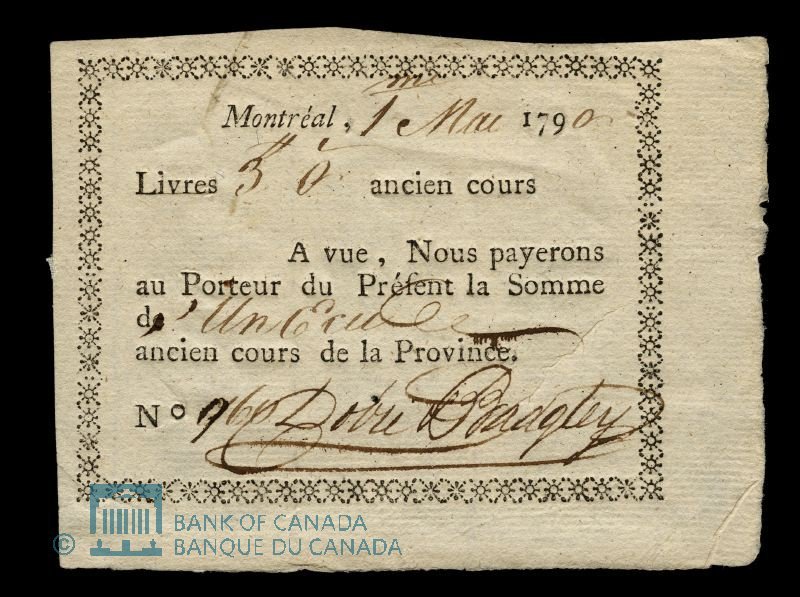 Montréal, 1me Mai 1790
Livres 3 ō ancien cours
A vue, Nous payerons
au Porteur du Préſent la Somme
d' Un Ecu
ancien cours de la Province.
No 960 Dobie & Badgley
© BANK OF CANADA
BANQUE DU CANADA